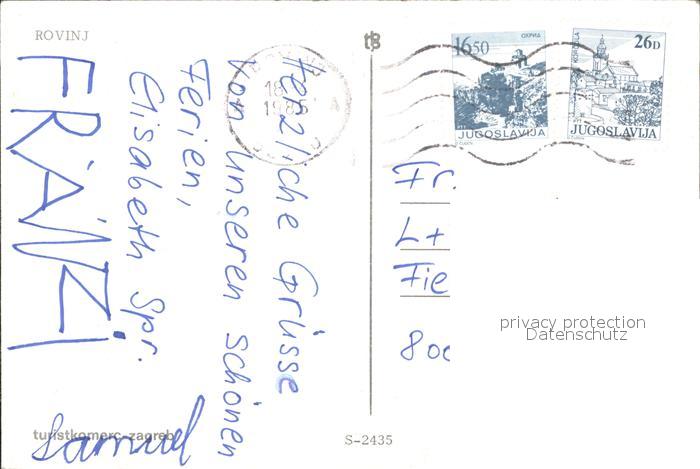 ROVINJ
Herzliche Grüsse
von unseren schönen
Ferien,
Elisabeth Spr.
FRÄNZI
Samuel
turistkomerc-zagreb
S-2435
16⁵⁰
ОХРИД
JUGOSLAVIJA
26D
KORČULA
JUGOSLAVIJA
Fr.
L+
Fie
privacy protection
Datenschutz